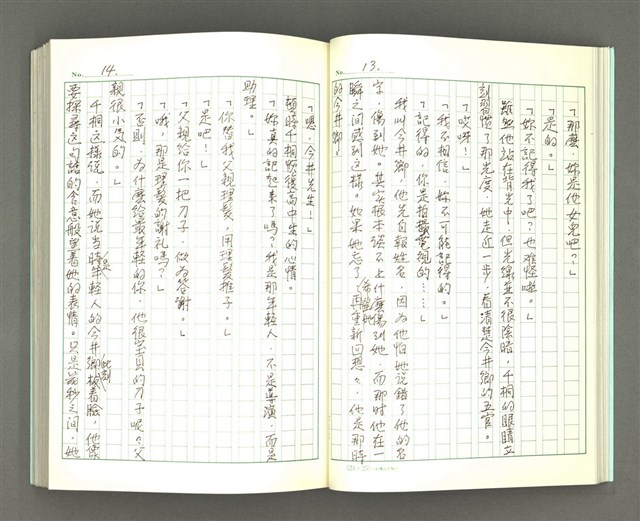 No. 13.
「那麼，妳是他女兒吧？」
「是的。」
「妳不記得我了吧？也難怪啦。」
雖然他站在背光中，但光線並不很陰暗，千桐的眼睛立
刻習慣了那光度，她走近一步，看清楚今井鄉的五官。
「哎呀！」
「我不相信，妳不可能記得的。」
「記得的，你是拍攝電視的……」
我叫今井鄉，他先自報姓名，因為他怕她說錯了他的名
字，傷到她。其实根本談不上什麼傷到她，而那时他在一
瞬之间感到这樣。如果她忘了，希望她再重新回想，他是那時
的今井鄉。
No. 14.
「嗯，今井先生！」
頓時千桐恢復高中生的心情。
「妳真的記起來了嗎？我是那年輕人，不是導演，而是
助理。」
「你替我父親理髮，用理髮推子。」
「是吧！」
「父親給你一把刀子，做為答謝。」
「哦，那是理髮的謝礼嗎？」
「否則，为什麼給最年轻的你，他很宝貝的刀子呢？父
親很小气的。」
千桐这樣说，而她说当時是年輕人的今井鄉此刻板着臉，他像
要探尋这句話的含意般望着她的表情。只是幾秒之间，她